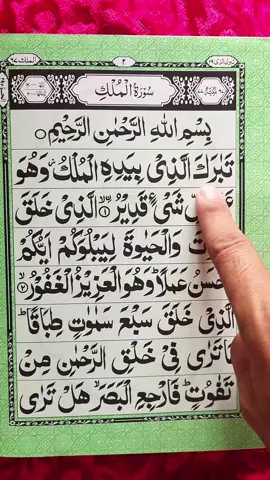 سُوْرَةُ الْمُلْكِ
بِسْمِ اللهِ الرَّحْمٰنِ الرَّحِيْمِ
تَبٰرَكَ الَّذِيْ بِيَدِهِ الْمُلْكُ وَهُوَ
شَيْءٍ قَدِيْرٌ ۙ﴿۱﴾ الَّذِيْ خَلَقَ
وَالْحَيٰوةَ لِيَبْلُوَكُمْ اَيُّكُمْ
اَحْسَنُ عَمَلًا ؕ وَهُوَ الْعَزِيْزُ الْغَفُوْرُ ۙ﴿۲﴾
الَّذِيْ خَلَقَ سَبْعَ سَمٰوٰتٍ طِبَاقًا ؕ
مَا تَرٰى فِيْ خَلْقِ الرَّحْمٰنِ مِنْ
تَفٰوُتٍ ؕ فَارْجِعِ الْبَصَرَ ۙ هَلْ تَرٰى